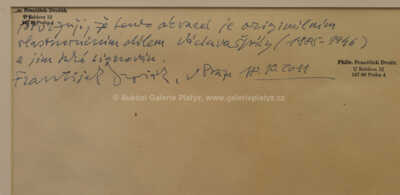 František Dvořák
U Bubláve 12
Potvrzuji, že tento obraz je originálním
vlastnoručním dílem Václava Špály (1885-1946)
a jím také signován.
František Dvořák, v Praze 17.12.2011
PhDr. František Dvořák
147 00 Praha 4
© Aukční Galerie Platýz, www.galerieplatyz.cz